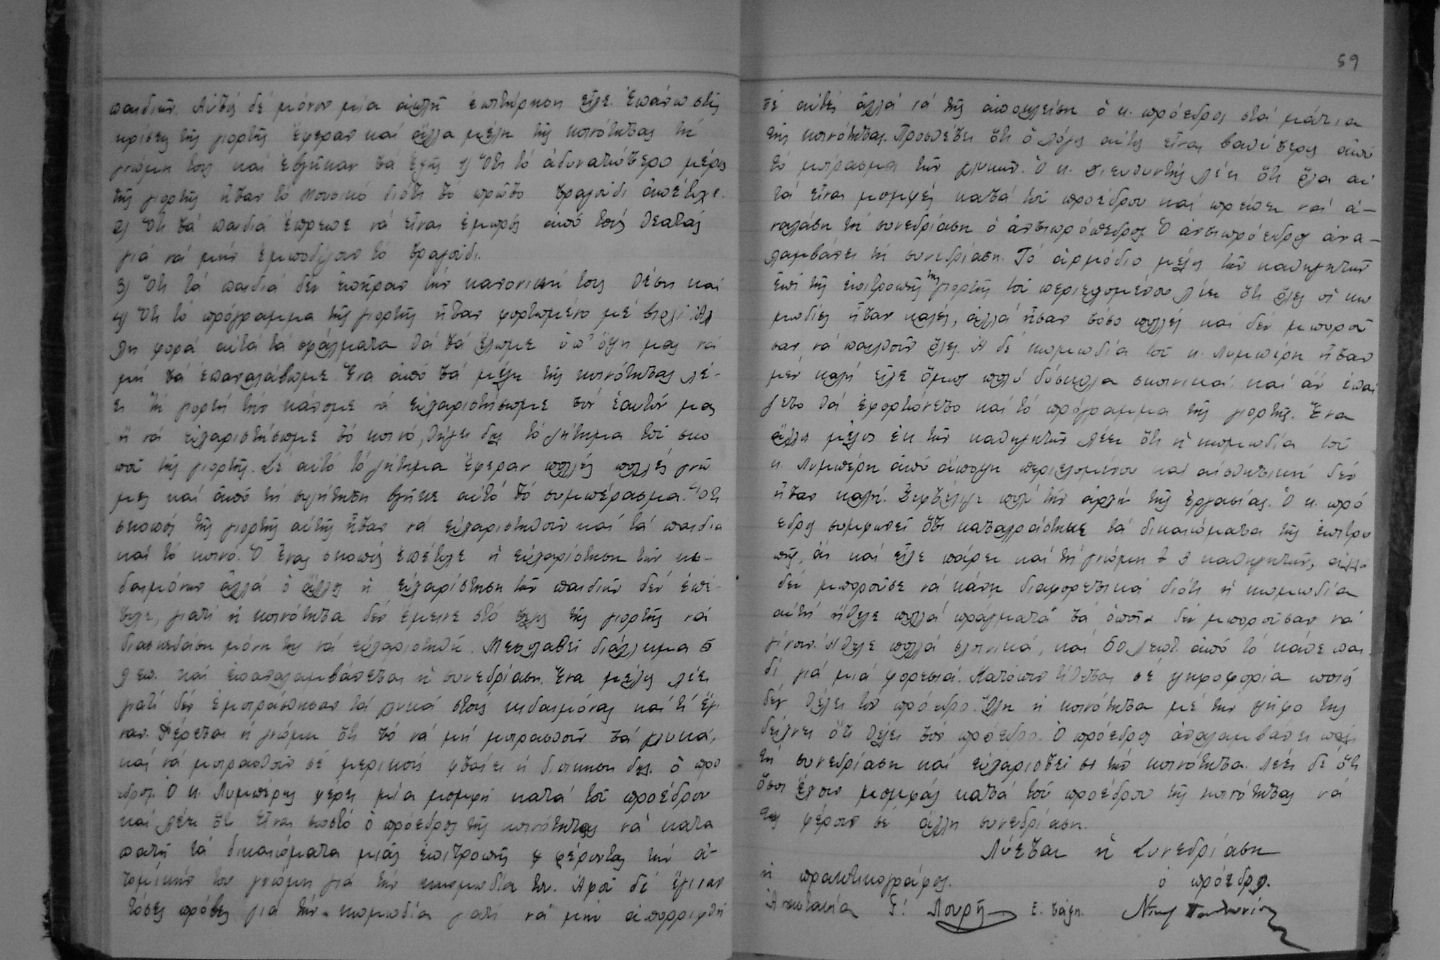 παιδιῶν. Αὐτὸς δέ μόνον μία ἁπλῆ ἐπιτήρηση εἶχε. Ἐπάνω στίς
κρίσεις τῆς γιορτῆς ἔφεραν καί ἄλλα μέλη τῆς κοινότητας τή
γνώμη τους καί ἐβγῆκαν τά ἑξῆς 1) Ὅτι τό ἀδυνατώτερο μέρος
τῆς γιορτῆς ἦταν τό Μουσικό διότι τό πρῶτο τραγούδι ἀπέτυχε.
2) Ὅτι τά παιδιά ἔπρεπε νά εἶναι ἐμπρός ἀπό τούς θεατάς
γιά νά μήν ἐμποδίζουν τό τραγούδι.
3) Ὅτι τά παιδιά δέν ἐπῆραν τήν κανονική τους θέση καί
4) Ὅτι τό πρόγραμμα τῆς γιορτῆς ἦταν φορτωμένο μέ Ἄλ
λη φορά αὐτά τά σφάλματα θά τά ἔχωμε ὑπ' ὄψη μας νά
μή τά ἐπαναλάβωμε. Ἕνα ἀπό τά μέλη τῆς κοινότητας λέ-
ει Τή γιορτή τήν κάναμε νά εὐχαριστήσωμε τόν ἑαυτόν μας
ἤ νά εὐχαριστήσωμε τό κοινό, θίγει δέ τό ζήτημα τοῦ σκο
ποῦ τῆς γιορτῆς. Σέ αὐτό τό ζήτημα ἔφεραν πολλές πολλές γνῶ
μες καί ἀπό τή συζήτηση βγῆκε αὐτό τό συμπέρασμα. Ὅτι
σκοπός τῆς γιορτῆς αὐτῆς ἦταν νά εὐχαριστηθοῦν καί τά παιδιά
καί τό κοινό. Ὁ ἕνας σκοπός ἐπέτυχε ἡ εὐχαρίστηση τῶν κη-
δεμόνων ἀλλά ὁ ἄλλος ἡ εὐχαρίστηση τῶν παιδιῶν δέν ἐπέ-
τυχε, γιατί ἡ κοινότητα δέν ἔμεινε στό τέλος τῆς γιορτῆς νά
διασκεδάση μόνη της νά εὐχαριστηθῆ. Μεσολαβεῖ διάλειμμα 5
λεπ. καί ἐπαναλαμβάνεται ἡ συνεδρίαση. Ἕνα μέλος λέει
γιατί δέν ἐμοιράσθησαν τά γλυκά στούς κηδεμόνας καί τί ἔγι
ναν. Φέρεται ἡ γνώμη ὅτι τό νά μή μοιρασθοῦν τά γλυκά,
καί νά μοιρασθοῦν σέ μερικούς φταίει ἡ διοίκηση δηλ. ὁ πρό
εδρος. Ὁ κ. Λυμπέρης φέρει μία μομφή κατά τοῦ προέδρου
καί λέει ὅτι εἶναι σωστό ὁ πρόεδρος τῆς κοινότητας νά κατα
πατῆ τά δικαιώματα μιᾶς ἐπιτροπῆς φέροντας τήν ἀ-
τομικήν του γνώμη γιά τήν κωμωδία του. Ἀφοῦ δέ ἔγιναν
τόσες πρόβες γιά τήν κωμωδία γιατί νά μήν ἀπορριφθῆ
59
σέ αὐτές ἀλλά νά τῆς ἀποκλείση ὁ κ. πρόεδρος στά μάτια
τῆς κοινότητας. Προσθέτει ὅτι ὁ λόγος αὐτός εἶναι βαθύτερος ἀπό
τό μοίρασμα τῶν γλυκῶν. Ὁ κ. διευθυντής λέει ὅτι ὅλα αὐ
τά εἶναι μομφές κατά τοῦ προέδρου καί πρέπει νά ἀ-
ναλάβη τή συνεδρίαση ὁ ἀντιπρόεδρος. Ὁ ἀντιπρόεδρος ἀνα-
λαμβάνει τή συνεδρίαση. Τό ἁρμόδιο μέλος τῶν καθηγητῶν
ἐπί τῆς ἐπιτροπῆς τῆς γιορτῆς τοῦ περιεχομένου λέει ὅτι ὅλες οἱ κω
μωδίες ἦταν καλές, ἀλλά ἦσαν τόσο πολλές καί δέν μποροῦ
σαν νά παιχθοῦν ὅλες. Ἡ δέ κωμωδία τοῦ κ. Λυμπέρη ἦταν
μέν καλή εἶχε ὅμως πολύ δύσκολα σκηνικά καί ἄν ἐπαί
ζετο θά ἐφορτώνετο καί τό πρόγραμμα τῆς γιορτῆς. Ἕνα
ἄλλο μέλος ἐκ τῶν καθηγητῶν λέει ὅτι ἡ κωμωδία τοῦ
κ. Λυμπέρη ἀπό ἄποψη περιεχομένου καί αἰσθητική δέν
ἦταν καλή. τήν ἀρχή τῆς ἐργασίας. Ὁ κ. πρό
εδρος συμφωνεῖ ὅτι καταπατήθηκε τά δικαιώματα τῆς ἐπιτρο
πῆς, ἄν καί εἶχε πάρει καί τή γνώμη 2 3 καθηγητῶν, ἀλλά
δέν μποροῦσε νά κάνη διαφορετικά διότι ἡ κωμωδία
αὐτή ἤθελε πολλά πράγματα τά ὁποῖα δέν μποροῦσαν νά
γίνουν. Ἤθελε πολλά σκηνικά, καί 60 λεπτ. ἀπό τό κάθε παι
δί γιά μιά φορεσιά. Κατόπιν τίθεται σέ ψηφοφορία ποιός
δέν θέλει τόν πρόεδρο. Ὅλη ἡ κοινότητα μέ τήν ψῆφο της
δείχνει ὅτι θέλει τόν πρόεδρο. Ὁ πρόεδρος ἀναλαμβάνει πάλι
τή συνεδρίαση καί εὐχαριστεῖ τήν κοινότητα. Λέει δέ ὅτι
ὅσοι ἔχουν μομφάς κατά τοῦ προέδρου τῆς κοινότητας νά
τάς φέρουν σέ ἄλλη συνεδρίαση.
Λύεται ἡ Συνεδρίαση
ἡ πρακτικογράφος. ὁ πρόεδρος.
Ἀναστασία Γ. Λουρῆ